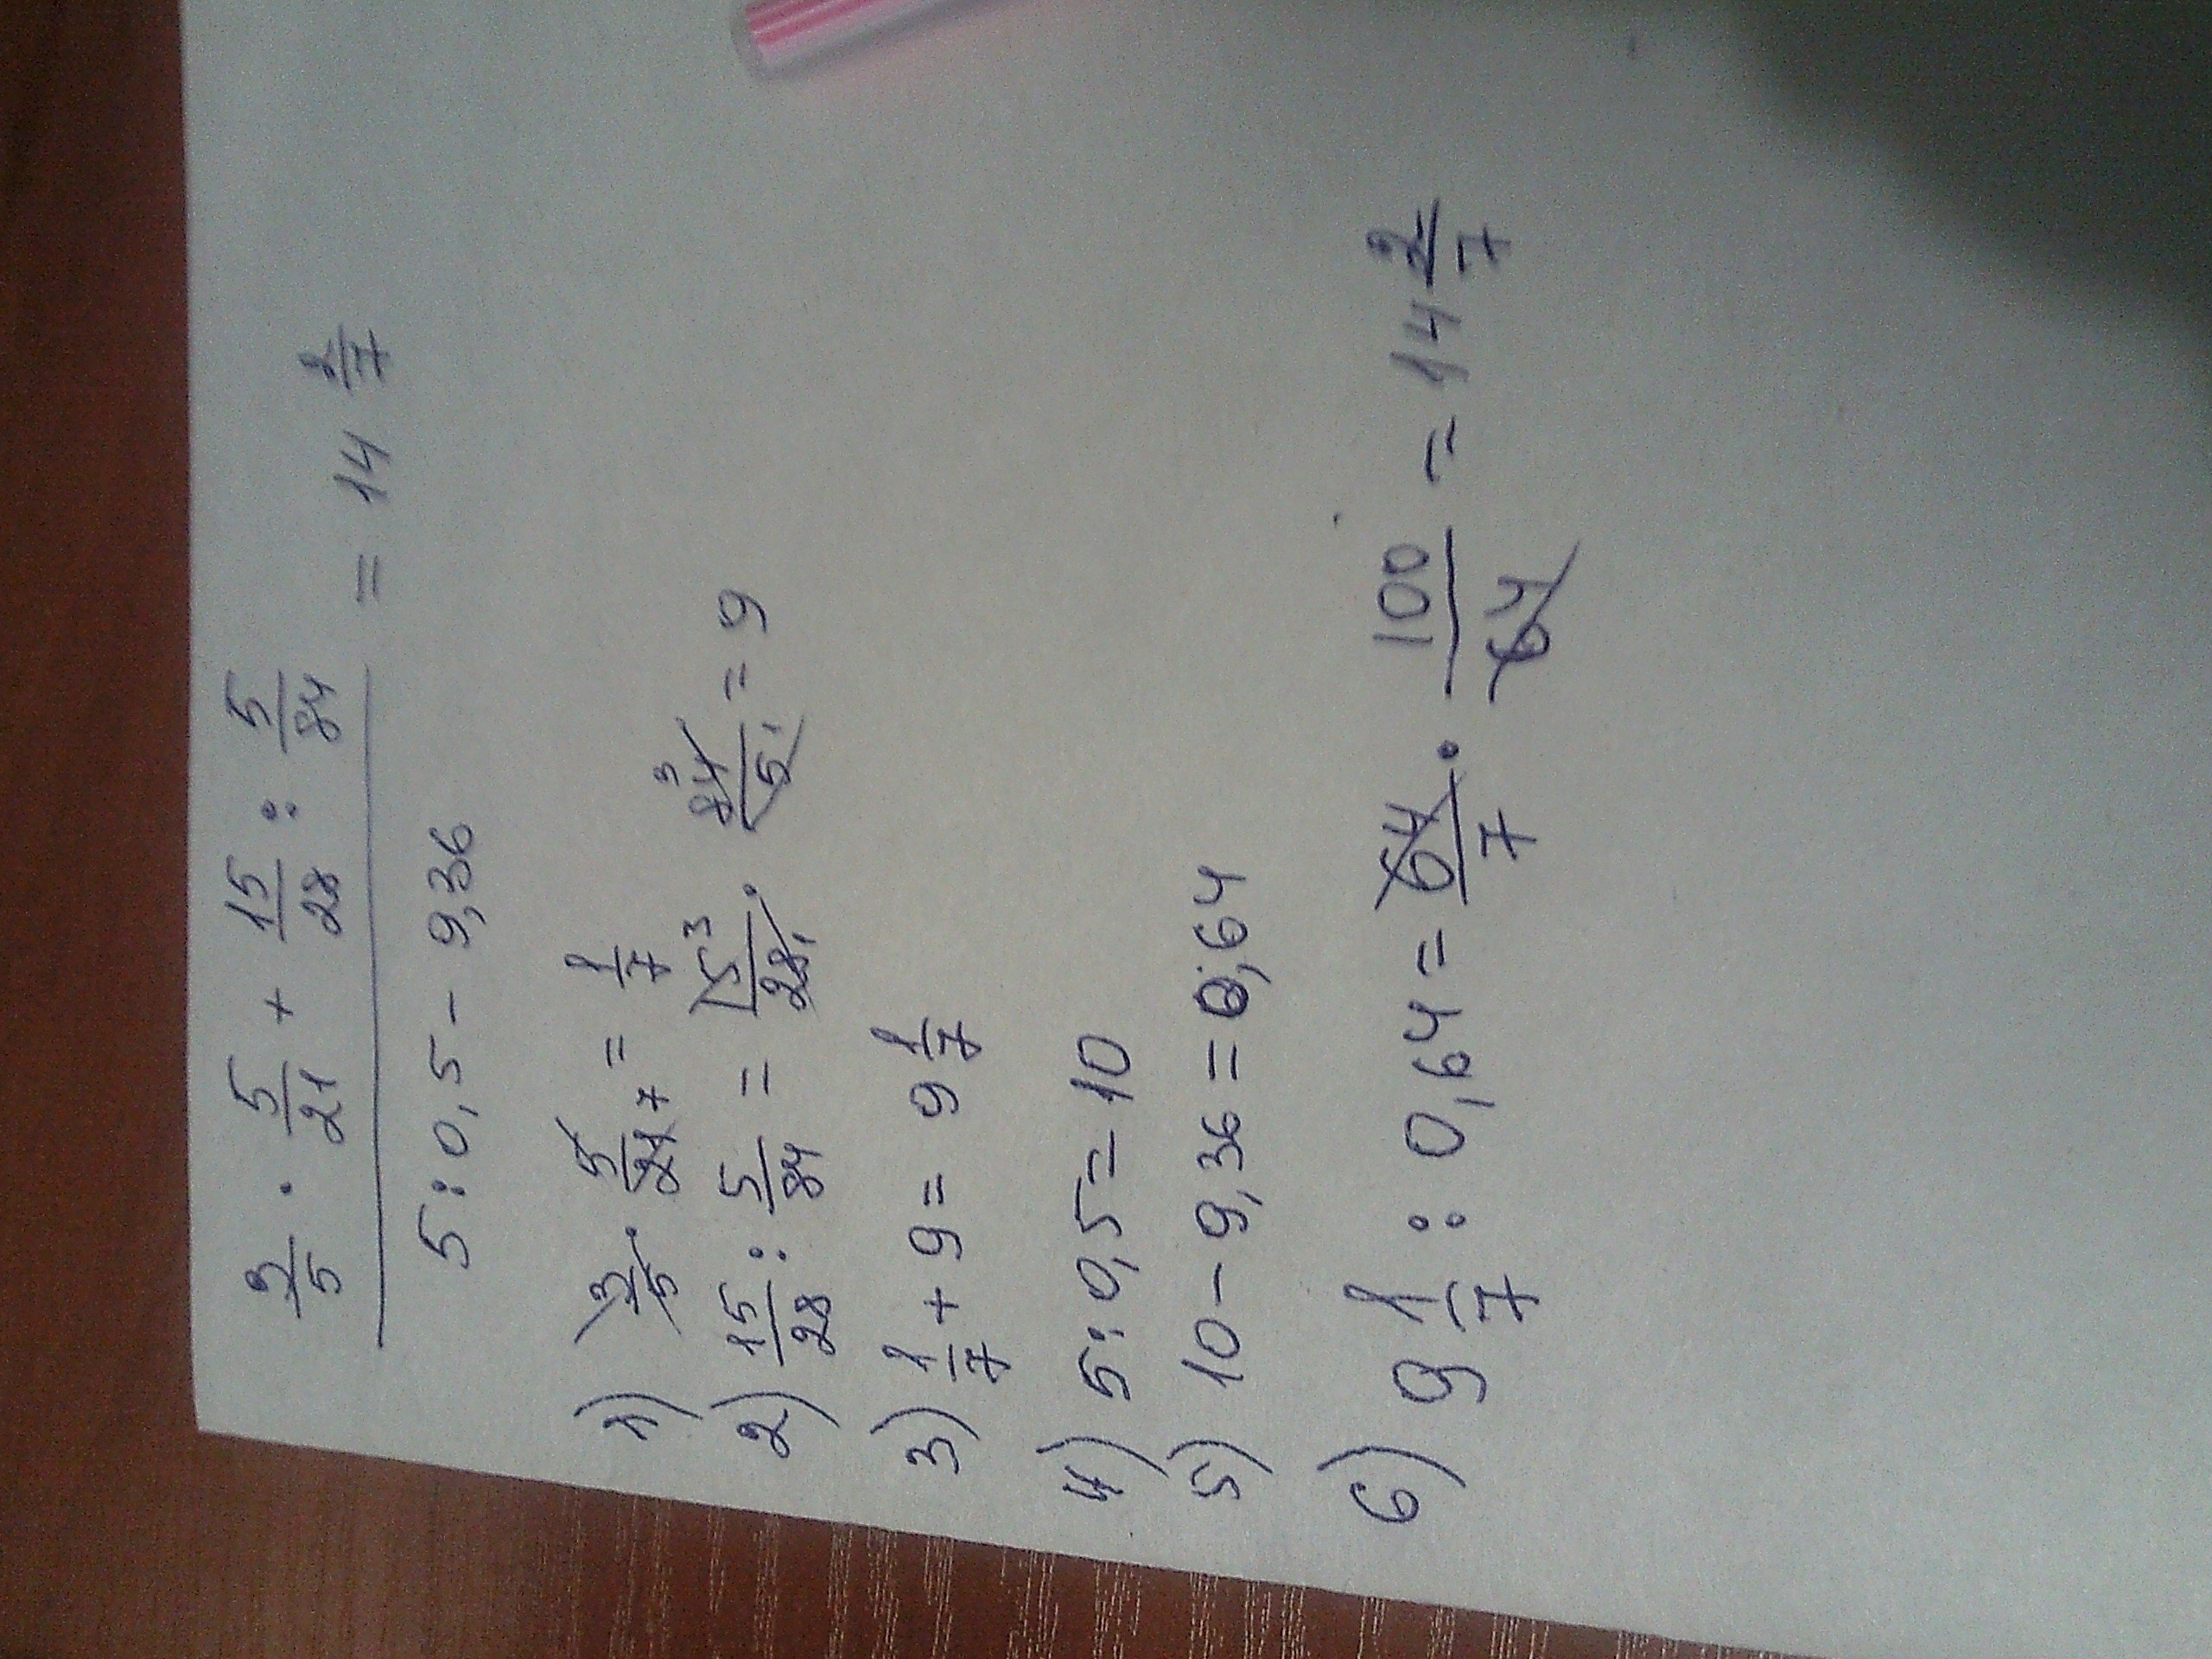 3/5 · 5/21 + 15/28 : 5/84
5 : 0,5 - 9,36 = 14 2/7
1) 3/5 · 5/21 7 = 1/7
2) 15/28 : 5/84 = 15 3/28 1 · 84 3/5 1 = 9
3) 1/7 + 9 = 9 1/7
4) 5 : 0,5 = 10
5) 10 - 9,36 = 0,64
6) 9 1/7 : 0,64 = 64/7 · 100/64 = 14 2/7